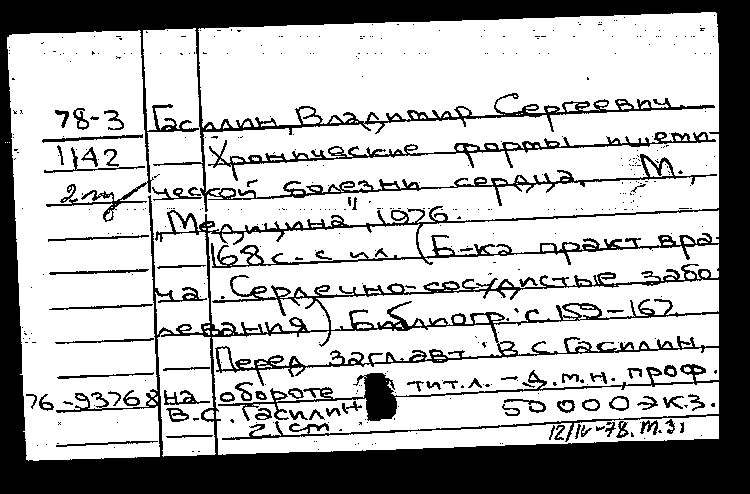 78-3 Гасилин, Владимир Сергеевич.
1142 Хронические формы ишеми-
ческой болезни сердца. М.,
"Медицина", 1976.
168 с. с ил. (Б-ка практ. вра-
ча. Сердечно-сосудистые забо-
левания). Библиогр.: с. 159-167.
Перед загл. авт.: В.С. Гасилин,
76-93768 на обороте тит. л. - д.м.н., проф.
В.С. Гасилин. 50 000 экз.
21 cm. 12/IV-78. т.з,